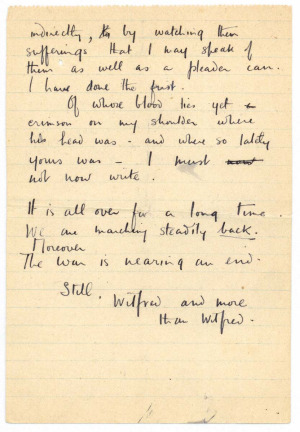 indirectly, by watching their
sufferings that I may speak of
them as well as a pleader can.
I have done the first.
Of whose blood lies yet
crimson on my shoulder where
his head was - and where so lately
yours was - I must
not now write.
It is all over for a long time.
We are marching steadily back.
Moreover
The War is nearing an end.
Still,
Wilfred and more
than Wilfred.